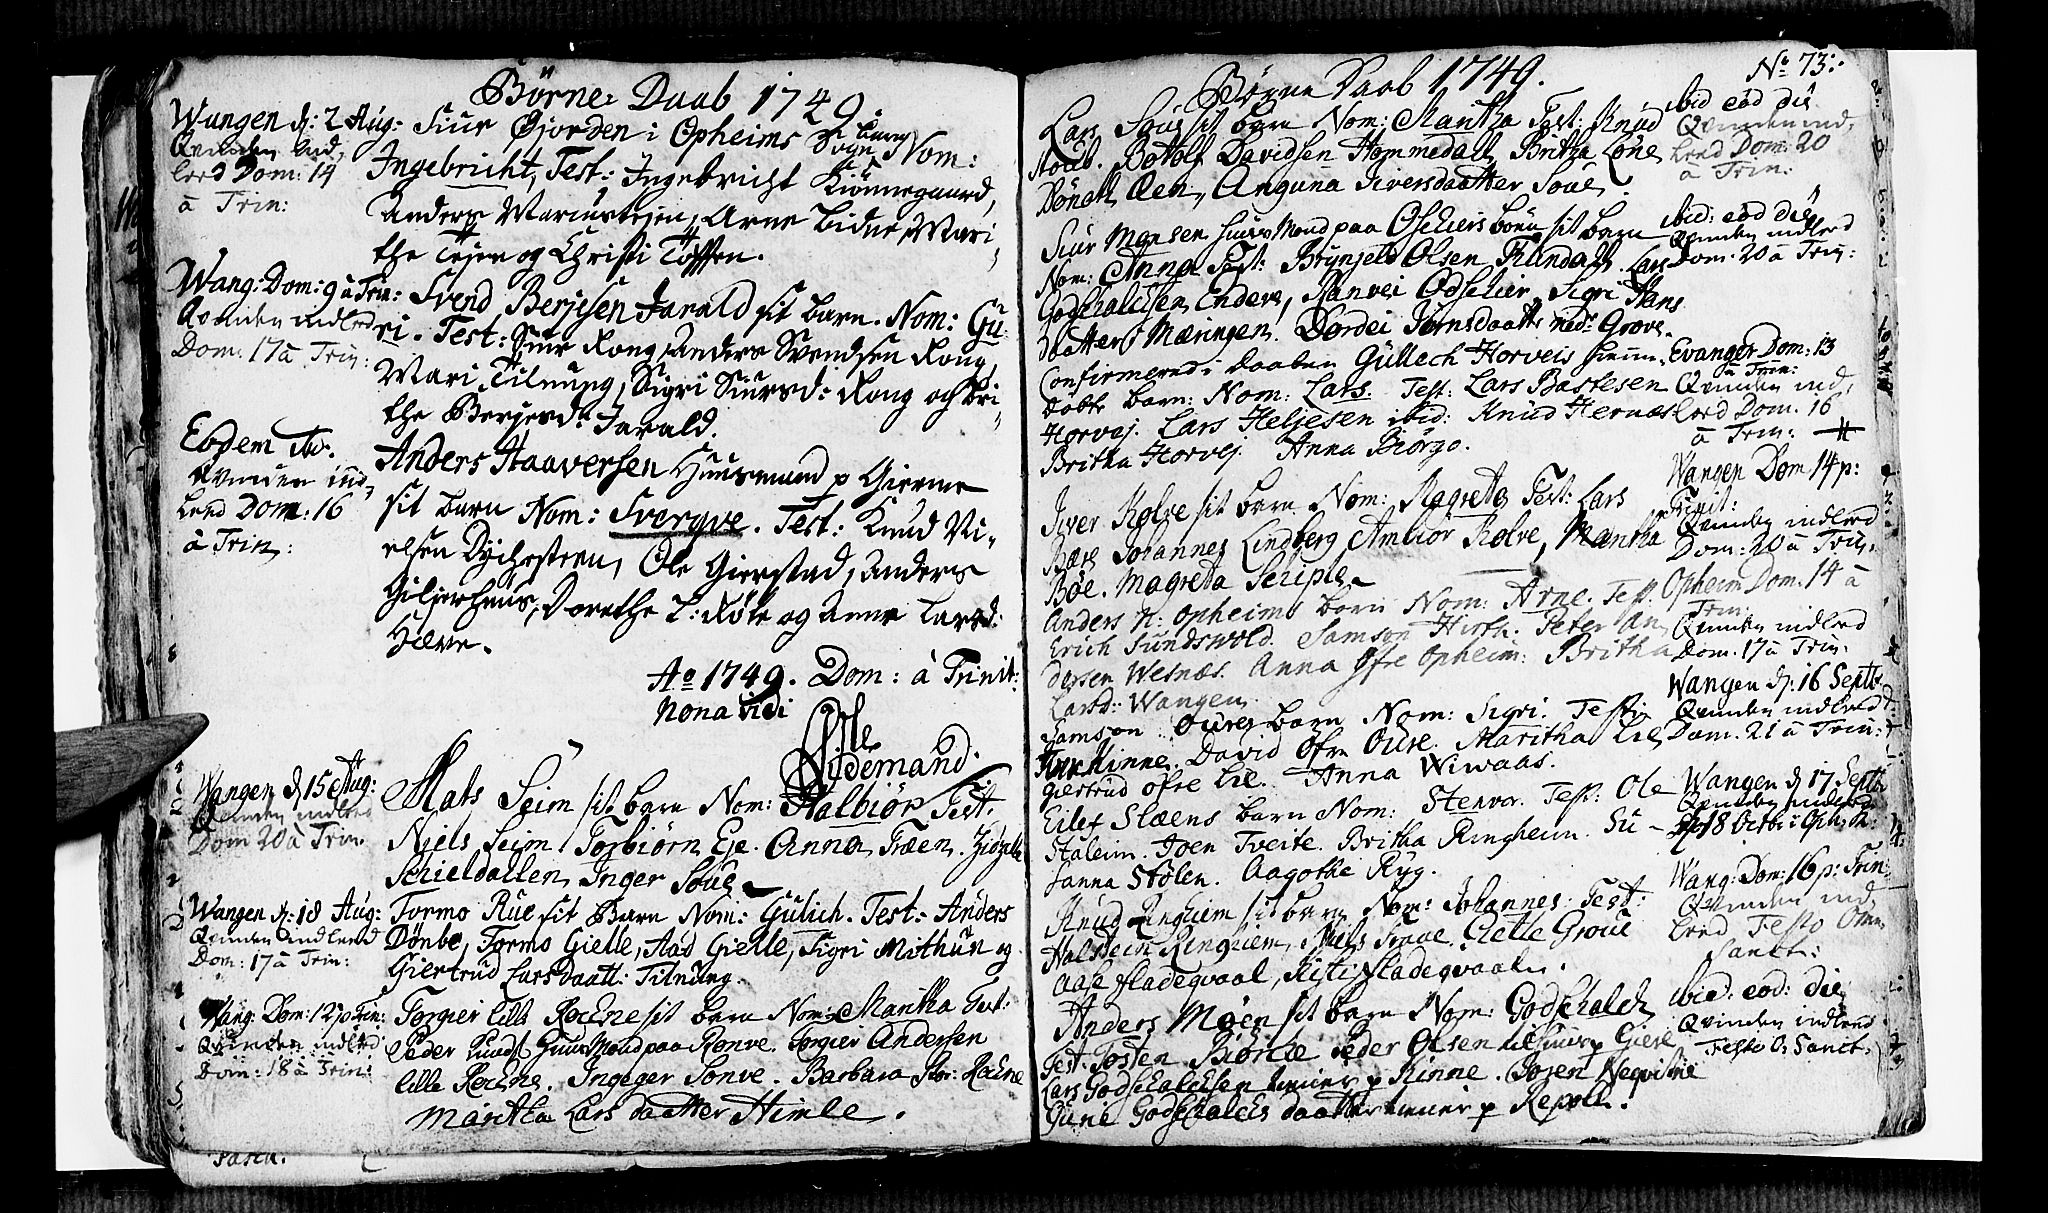 Börne: Daab 1749.
Wangen d: 2 Aug:
Qvinden ind,
leed Dom: 14
à Trin:
Siur Gjorden i Opheims Sogn barn Nom:
Ingebricht, Test: Ingebricht Kinnegaard,
Anders Mariustejen, Arne Lidne, Mari-
the Tejen og Christi Tossen.
Wang: Dom: 9 à Trin:
Qvinden indleed
Dom. 17 à Trin:
Svend Berjesen Jarald sit barn. Nom: Gu-
ri. Test: Siur Rong, Anders Svendsen Rong,
Mari Tilnung, Sigri Siursd: Rong og Bri-
the Berjesd: Jarald.
Eodem
Qvinden ind,
leed Dom: 16
à Trin:
Anders Haaversen Huusmand p Gierme
sit barn Nom: Sverqve. Test: Knud Ni-
elsen Dychesteen, Ole Gierstad, Anders
Giljarhuus, Dorethe L: Röte og Anne Larsd:
Hæve.
Ao 1749. Dom: à Trinit:
nona vidi
Gildemand.
Wangen d 15 Aug:
Qvinden indleed
Dom 20 à Trin.
Mats Seim sit barn Nom: Halbiör Test.
Niels Seim Torbiörn Eje. Anna Træen.
Schieldallen, Inger Soue
Wangen d: 18 Aug:
Qvinden indleed
Dom: 17 à Trin:
Tormo Rue sit Barn Nom: Gulich. Test: Anders
Dönbe, Tormo Gielle, Aad Gielle, Sigri Mithun og
Giertrud Larsdaatt: Tilnung.
Wang: Dom: 12 p Trin:
Qvinden indleed
Dom: 18 à Trin:
Torgier lille Rochne sit barn Nom: Maritha Test:
Peder Lund Huus Mond paa Rönve. Torgier Andersen
lille Rochne. Ingeger Sonve. Barbara Stor: Rochne
Maritha Lars daatter Himle.
Börne Daab 1749.
No 73:
Lars Soue sit barn Nom: Maritha Test: Knud
Botolf Davidsen Hommedall, Britha Lone
Anguna Iversdaatter Soue.
ibid eod die
Qvinden ind,
leed Dom: 20
à Trin:
Siur Monsen Huus Mond paa Oscheirs bönn sit barn
Nom: Anna Test: Brynjeld Olsen Rundall. Lars
Godschalchsen Endeve, Ranvei Odscheir, Sigri Hans
daatter Mæringen. Dordei Jörnsdaatter Nedr Grove.
ibid: eod die
Qvinden indleed
Dom: 20 à Trin:
Confirmered i daaben Gullech Horveis
döbte barn: Nom: Lars. Test: Lars Bastesen
Horvej. Lars Heljesen ibid: Knud Hernæs
Britha Horvej Anna Biörgo.
Evanger Dom: 13
à Trin:
Qvinden ind,
leed Dom. 16
à Trin:
Iver Rolve sit barn Nom: Magreta Test: Lars
Johannes Lindberg Ambiör Rolve, Maritha
Böe. Magreta Schiple
Wangen Dom 14 p:
Trinit:
Qvinden indleed
Dom: 20 à Trin.
Anders N: Opheims barn Nom: Arne. Test:
Erich Sundswold Samson Hirth. Peter An,
dersen Wesnæs. Anna öfre Opheim. Britha
Larsd: Wangen
Opheim Dom. 14 à
Trin.
Qvinden indleed
Dom. 17 à Trin:
Samson Oures barn Nom: Sigri. Test:
Rinne. David Öfre Oure. Maritha Lie
Giertrud öfre Lie. Anna Wiwaas.
Wangen d: 16 Septb
Qvinden indleed
Dom. 21 à Trin:
Eilef Slæens barn Nom: Stenvor. Test: Ole
Staleim. Joen Tveite. Britha Ringheim. Su-
sanna Stölen. Aagothe Ryg.
Wangen d 17 Septb
Qvinden indleed
18 Octbr i Oph: K:
Knud Ringheim sit barn Nom: Johannes. Test:
Halstein Ringhiem, Niels Graue. Giette Groue
Aase Fladeqvaal, Kisti Fladeqvaal.
Wang: Dom: 16 p: Trin
Qvinden ind,
leed Festo Omn
Sanct:
Anders Möen sit barn Nom: Godschalch
Test. Tosten Biörke Peder Olsen til Huus p Giere,
Lars Godschalchsen tiener p Rinne. Gosen Neqvitne
Guni Godschalchs daatter tiener p Repoll.
ibid: eod: die
Qvinden indleed
Festo O: Sanct.